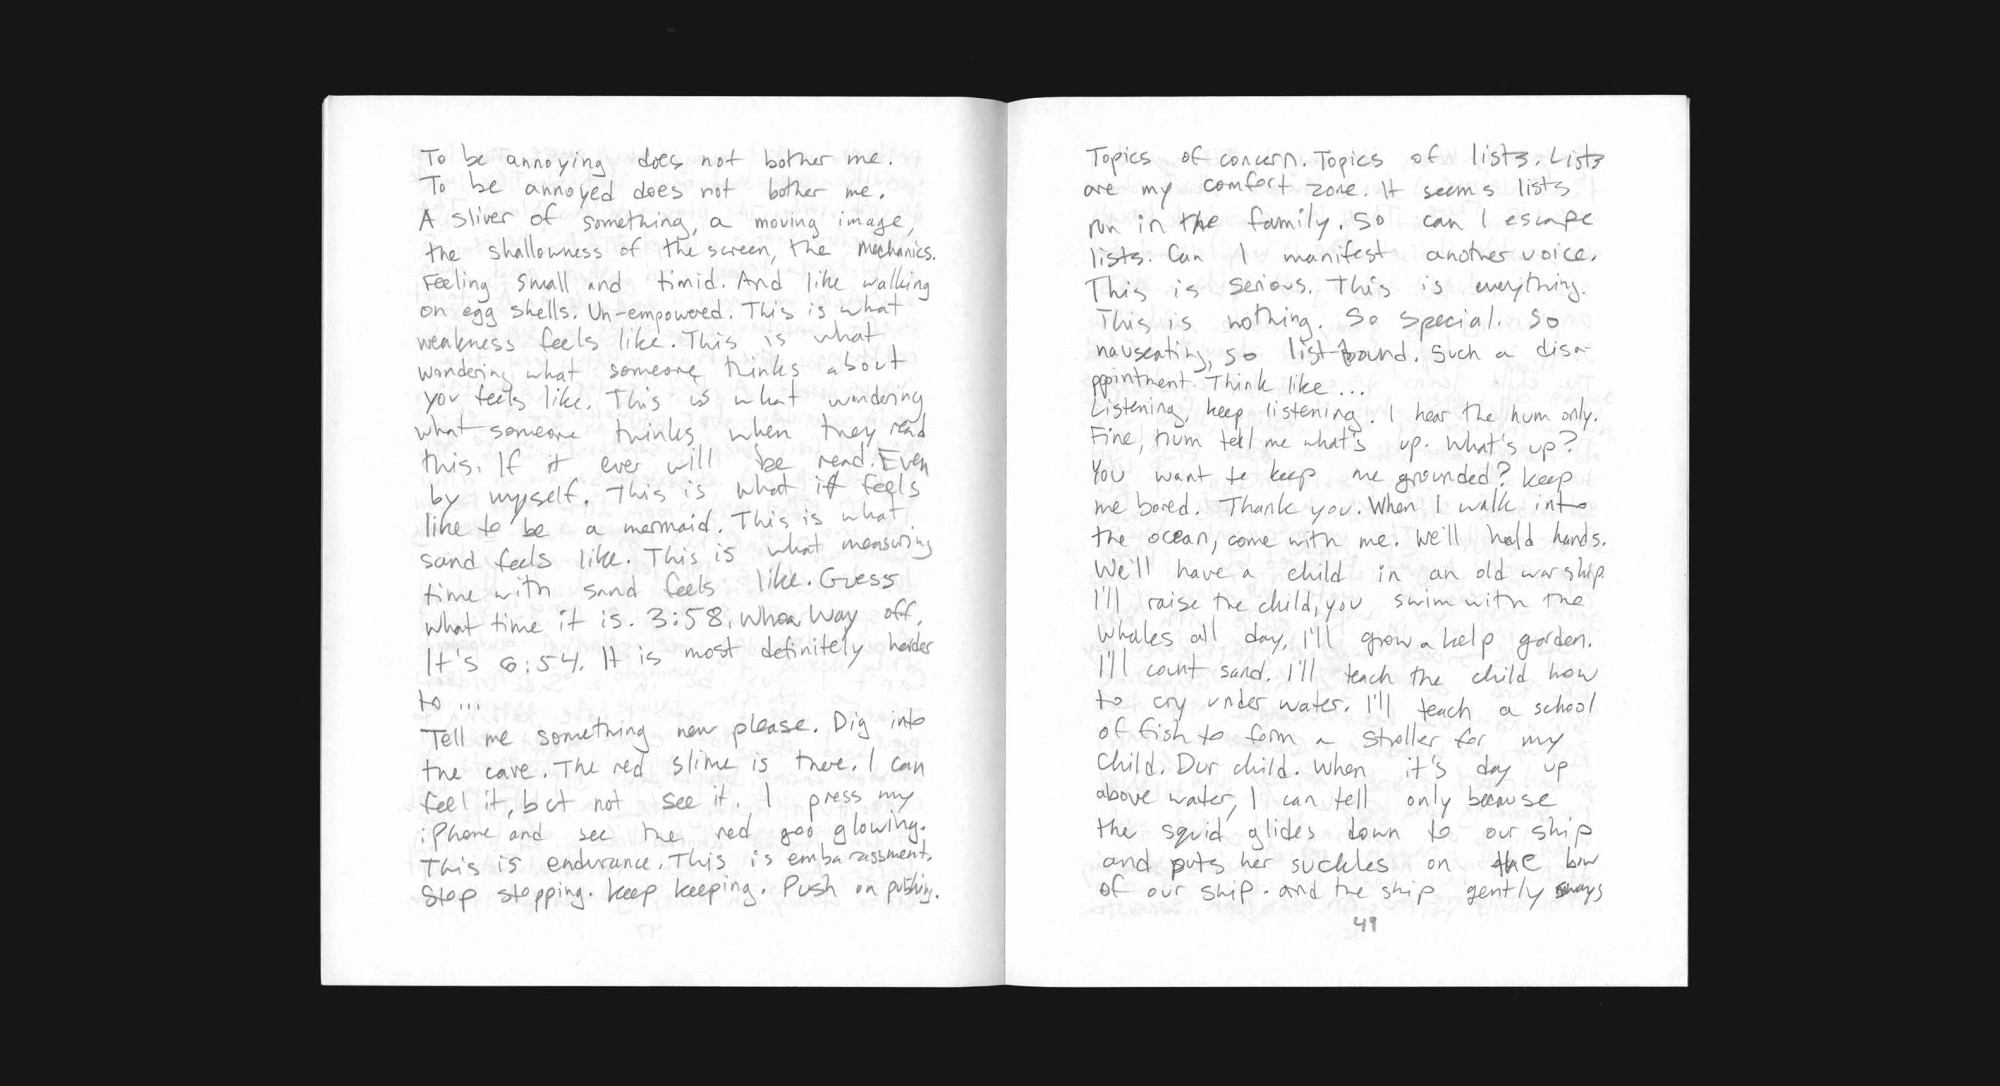 To be annoying does not bother me.
To be annoyed does not bother me.
A sliver of something, a moving image,
the shallowness of the screen, the mechanics.
Feeling small and timid. And like walking
on egg shells. Un-empowered. This is what
weakness feels like. This is what
wondering what someone thinks about
you feels like. This is what wondering
what someone thinks when they read
this. If it ever will be read. Even
by myself. This is what it feels
like to be a mermaid. This is what
sand feels like. This is what measuring
time with sand feels like. Guess
what time it is. 3:58. Whoa Way off.
It's 6:54. It is most definitely harder
to ...
Tell me something new please. Dig into
the cave. The red slime is there. I can
feel it, but not see it. I press my
iPhone and see the red goo glowing.
This is endurance. This is embarassment.
Stop stopping. Keep keeping. Push on pushing.
Topics of concern. Topics of lists. Lists
are my comfort zone. It seems lists
run in the family. So can I escape
lists. Can I manifest another voice.
This is serious. This is everything.
This is nothing. So special. So
nauseating, so list-bound. Such a disa-
ppointment. Think like ...
Listening, keep listening. I hear the hum only.
Fine, hum tell me what's up. What's up?
You want to keep me grounded? Keep
me bored. Thank you. When I walk into
the ocean, come with me. We'll hold hands.
We'll have a child in an old warship.
I'll raise the child, you swim with the
whales all day, I'll grow a kelp garden.
I'll count sand. I'll teach the child how
to cry under water. I'll teach a school
of fish to form a stroller for my
child. Our child. When it's day up
above water, I can tell only because
the squid glides down to our ship
and puts her suckles on the bow
of our ship. and the ship gently sways
49